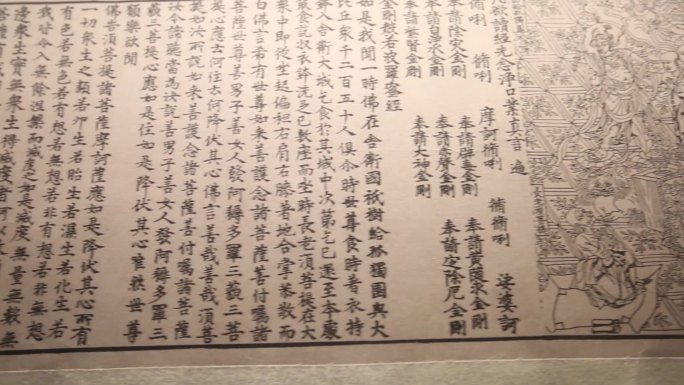 讀經先念淨口業真言 遍
脩唎 脩唎 摩訶脩唎 脩脩唎 娑婆訶
奉請除灾金剛 奉請辟毒金剛 奉請黃隨求金剛
奉請白淨水金剛 奉請赤聲金剛 奉請定除厄金剛
奉請紫賢金剛 奉請大神金剛
金剛般若波羅蜜經
如是我聞一時佛在舍衛國祇樹給孤獨園與大
比丘衆千二百五十人俱尒時世尊食時著衣持
鉢入舍衛大城乞食於其城中次第乞已還至本處
飯食訖收衣鉢洗足已敷座而坐時長老湏菩提在大
衆中即從坐起偏袒右肩右膝著地合掌恭敬而
白佛言希有世尊如來善護念諸菩薩善付囑諸
菩薩世尊善男子善女人發阿耨多羅三藐三菩
提心應云何住云何降伏其心佛言善哉善哉湏菩
提如汝所說如來善護念諸菩薩善付囑諸菩薩
汝今諦聽當為汝說善男子善女人發阿耨多羅三
藐三菩提心應如是住如是降伏其心唯然世尊
願樂欲聞
佛告湏菩提諸菩薩摩訶薩應如是降伏其心所有
一切衆生之類若卵生若胎生若濕生若化生若
有色若無色若有想若無想若非有想若非無想
我皆令入無餘涅槃而滅度之如是滅度無量無數無
邊衆生實無衆生得滅度者何以故